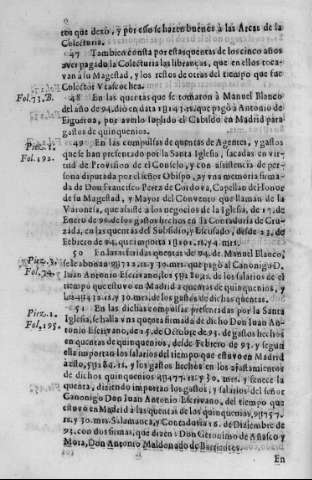 tos que dexo, y por esso se hazen buenos à las Arcas de la
Colecturia.
47 Tambien consta por estas quentas de los cinco años
aver pagado la Colecturia las libranças, que en ellos toca-
van à su Magestad, y los restos de otras del tiempo que fue
Colector
Fol. 73. B.
48 En las quentas que se tomaron à Manuel Blanco
del año de 94. diò en data que pagò à Antonio de
Figueroa, por averlo logrado el Cabildo en Madrid para
gastos de quinquenios.
Piez. 1.
Fol. 192.
49 En las compulsas de quentas de Agentes, y gastos
que se han presentado por la Santa Iglesia, sacadas en vir-
tud de Provision de el Consejo, y con assistencia de per-
sona diputada por el señor Obispo, ay vna memoria firma-
da de Don Francisco Perez de Cordova, Capellan de Honor
de su Magestad, y Mayor del Convento que llaman de la
Varonesa, que assiste à los negocios de la Iglesia, de 17. de
Enero de 96. de los gastos hechos en la Contaduria de Cru-
zada, en las quentas del Subsidio, y Escusado, desde 23. de
Febrero de 94. que importa
Piez. 3.
Fol. 34.
50 En las referidas quentas de 94. de Manuel Blanco,
se le abonan que pagò al Canonigo D.
Juan Antonio Escrivano, los de los salarios de el
tiempo que estuvo en Madrid à quentas de quinquenios, y
los de los gastos de dichas quentas.
Piez. 1.
Fol. 195.
51 En las dichas compulsas presentadas por la Santa
Iglesia, se halla vna quenta firmada de dicho Don Juan An-
tonio Escrivano, de 25. de Octubre de 93. de gastos hechos
en quentas de quinquenios, desde Febrero de 93. y segun
ella importan los salarios del tiempo que estuvo en Madrid
à esto, y los gastos hechos en los ajustamientos
de dichos quinquenios y fenece la
quenta, diziendo importan los gastos, y salarios del señor
Canonigo Don Juan Antonio Escrivano, del tiempo que
estuvo en Madrid à las quentas de los quinquenios,
rs. y 30. mrs. Salamanca, y Contaduria 16. de Diziembre de
93. con dos firmas, que dizen: Don Geronimo de Añasco y
Mora, Don Antonio Maldonado de Barrientos.
En